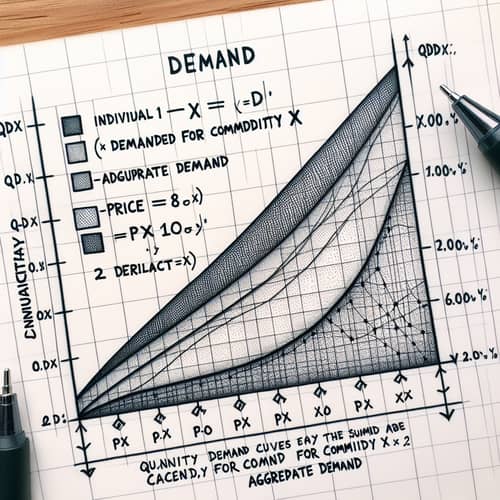 DEMAND
INDIVIUAL 1 — X = (=D)'
(x DEMANDED FOR COMMODITITY X
-ADGUPRATE DEMAND
-PRICE = 8ox)
=PX 10
2 DERILACT=X)
QDX
QD.X
Q-DX
O.X
OX
O.DX
QDDX:.
X.00.%
1.00.%
2.00.%
6.00.%
2.0.%
PX P.X P-O PX PX XO PX XX
QU.NNITY DEMAND CUVES EAY THE SUMID ABE
CACEND,Y FOR COMND FOR COMMIDIY X x 2
AGGREPATE DEMAND